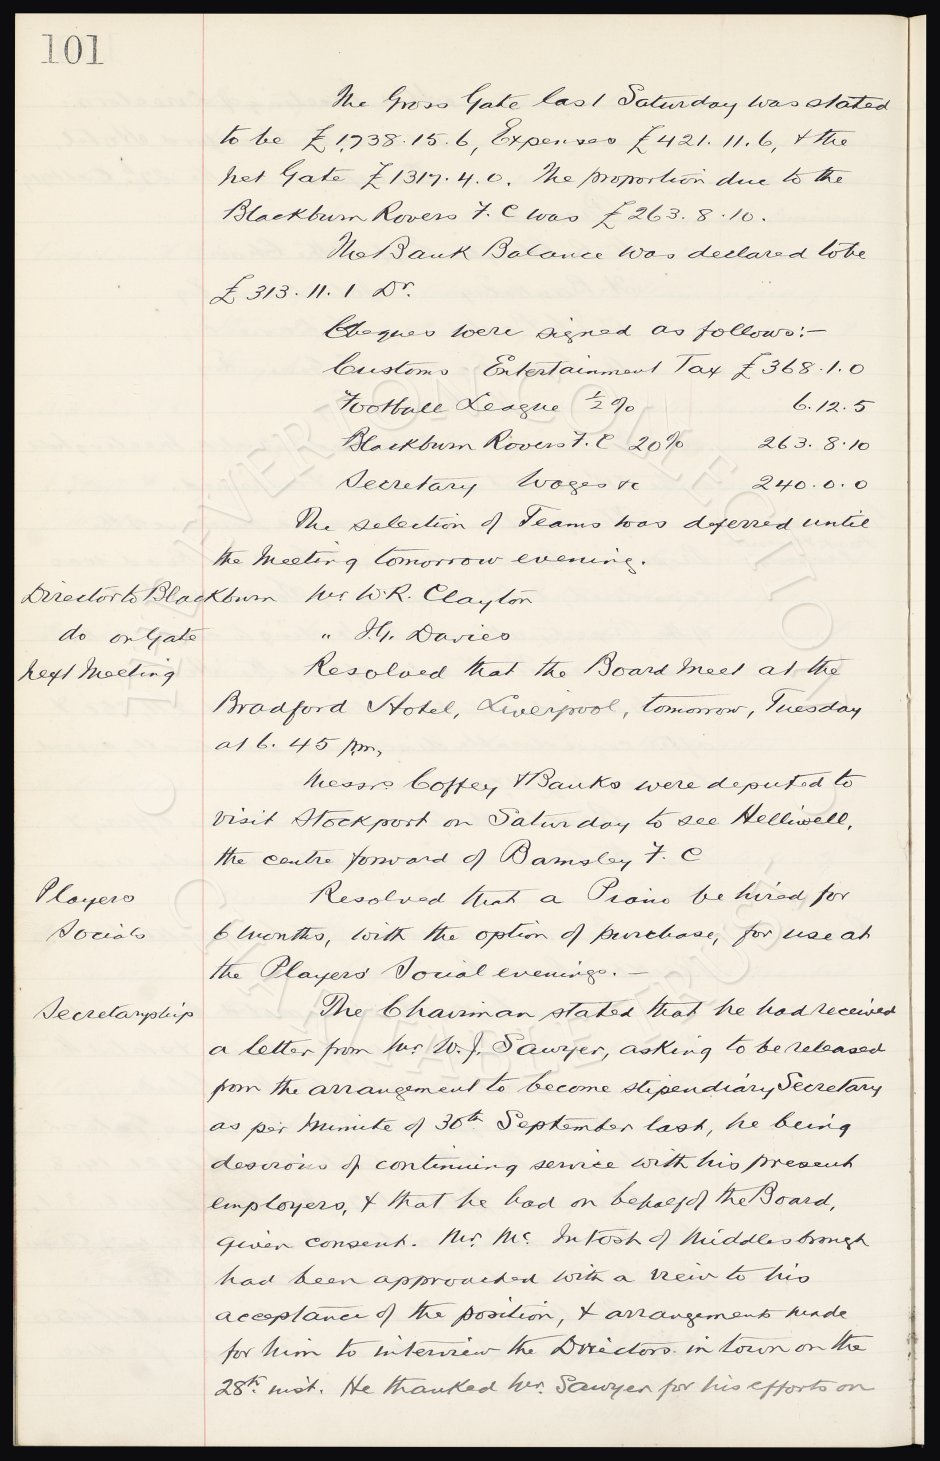 101
The Gross Gate last Saturday was stated
to be £1,738.15.6, Expenses £421.11.6, & the
net Gate £1317.4.0. The proportion due to the
Blackburn Rovers F.C was £263.8.10.
The Bank Balance was declared to be
£313.11.1 Dr.
Cheques were signed as follows:-
Customs Entertainment Tax £368.1.0
Football League ½% 6.12.5
Blackburn Rovers F.C 20% 263.8.10
Secretary Wages &c 240.0.0
The selection of Teams was deferred until
the Meeting tomorrow evening.
Director to Blackburn Mr. W.R. Clayton
do on Gate " J.G. Davies
Next Meeting Resolved that the Board meet at the
Bradford Hotel, Liverpool, tomorrow, Tuesday
at 6.45 pm,
Messrs Coffey & Banks were deputed to
visit Stockport on Saturday to see Helliwell,
the centre forward of Barnsley F.C
Players Resolved that a Piano be hired for
Socials 6 months, with the option of purchase, for use at
the Players' Social evenings.-
Secretaryship The Chairman stated that he had received
a letter from Mr. W.J. Sawyer, asking to be released
from the arrangement to become stipendiary Secretary
as per Minute of 30th September last, he being
desirous of continuing service with his present
employers, & that he had on behalf of the Board,
given consent. Mr. Mc. Intosh of Middlesbrough
had been approached with a view to his
acceptance of the position, & arrangements made
for him to interview the Directors in town on the
28th. inst. He thanked Mr. Sawyer for his efforts on